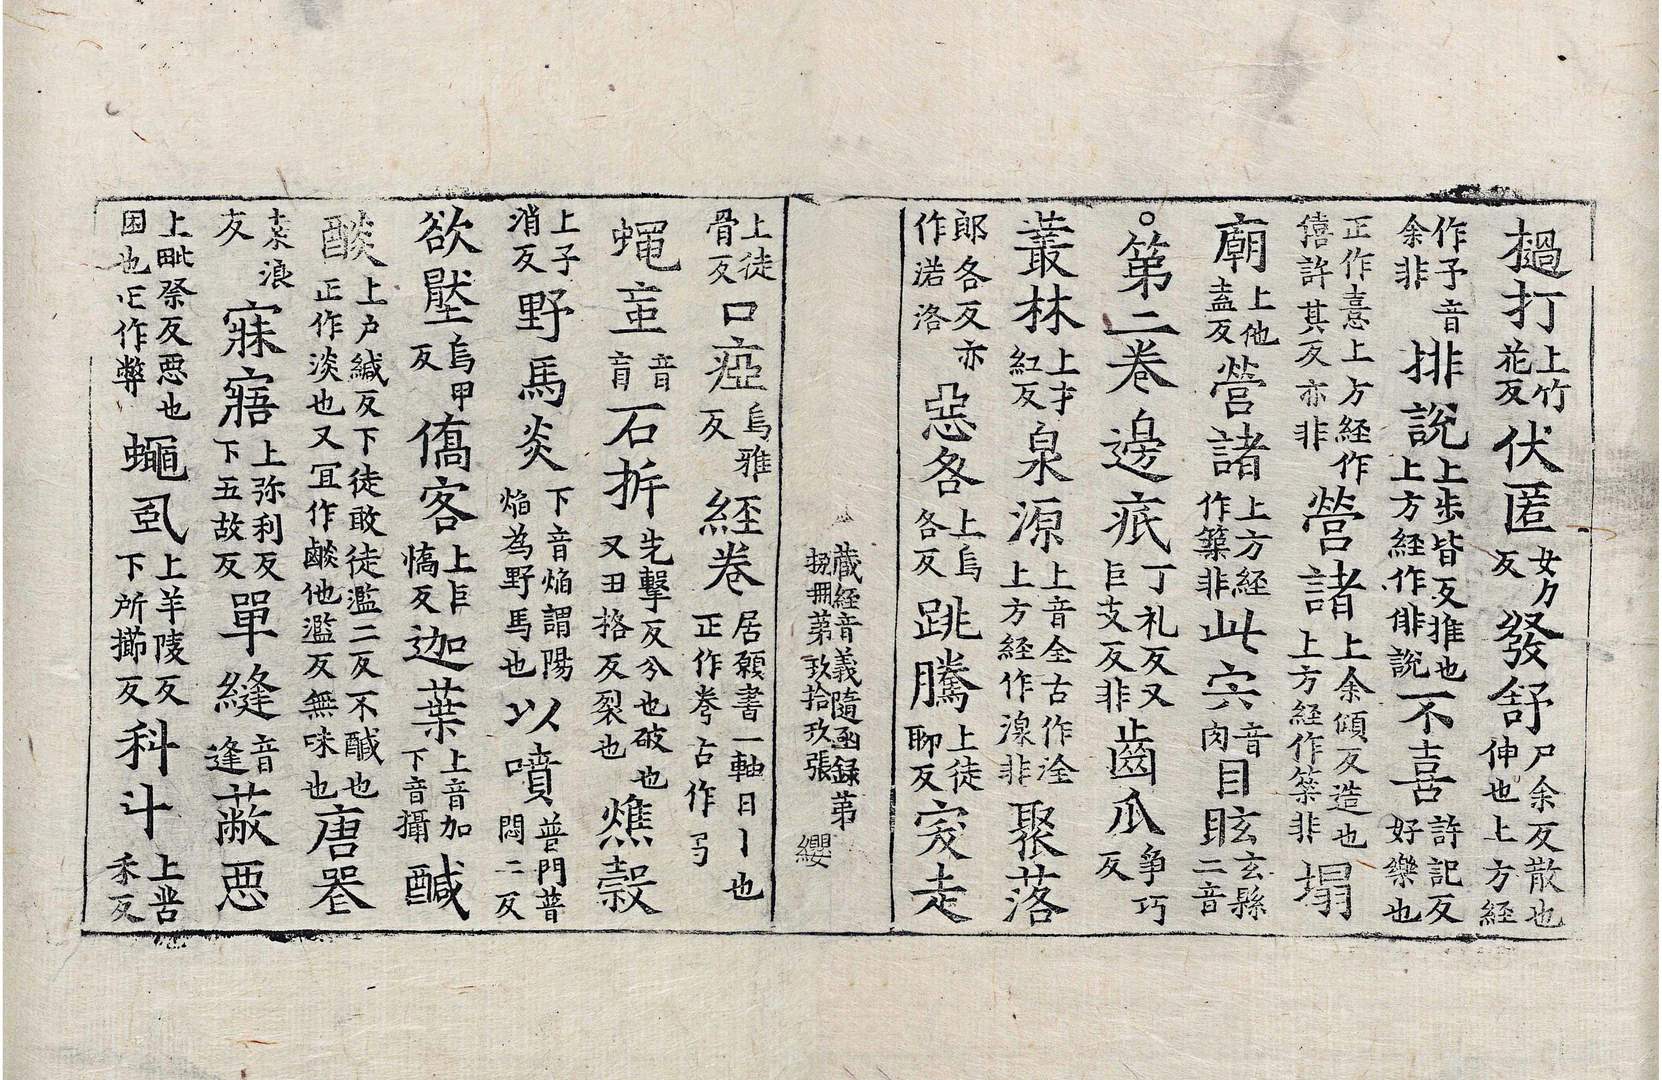 撾打上竹花反伏匿女力反發舒尸余反散也伸也上方經
作予音余非排說上步皆反推也上方經作俳說不喜許記反好樂也
正作憙上方經作僖許其反亦非營諸上余傾反造也上方經作築非塌
廟上他盍反營諸上方經作築非此宍音肉目眩玄縣二音
○第二卷邊疷丁礼反又巨支反非齒爪爭巧反
叢林上才紅反泉源上音全古作洤上方經作湶非聚落
郎各反亦作㳣洛惡各上烏各反跳騰上徒聊反㝡走
藏經音義隨函録第捌冊第玖拾玖張 纓
上徒骨反口瘂烏雅反經卷居願書一軸曰丨也正作𢍏古作㢧
蝇䖟音盲石折先擊反分也破也又丑格反裂也燋穀
上子消反野馬炎下音焔謂陽焔為野馬也以噴普門普悶二反
欲壓烏甲反僑客上巨憍反迦葉上音加下音攝醎
醶上户緘反下徒敢徒濫二反不醎也正作淡也又冝作鹹他濫反無味也唐𠍋
𣑱浪反寐寤上弥利反下五故反單縫音逢蔽惡
上毗祭反惡也困也正作弊蠅虱上羊陵反下所擳反科斗上苦禾反